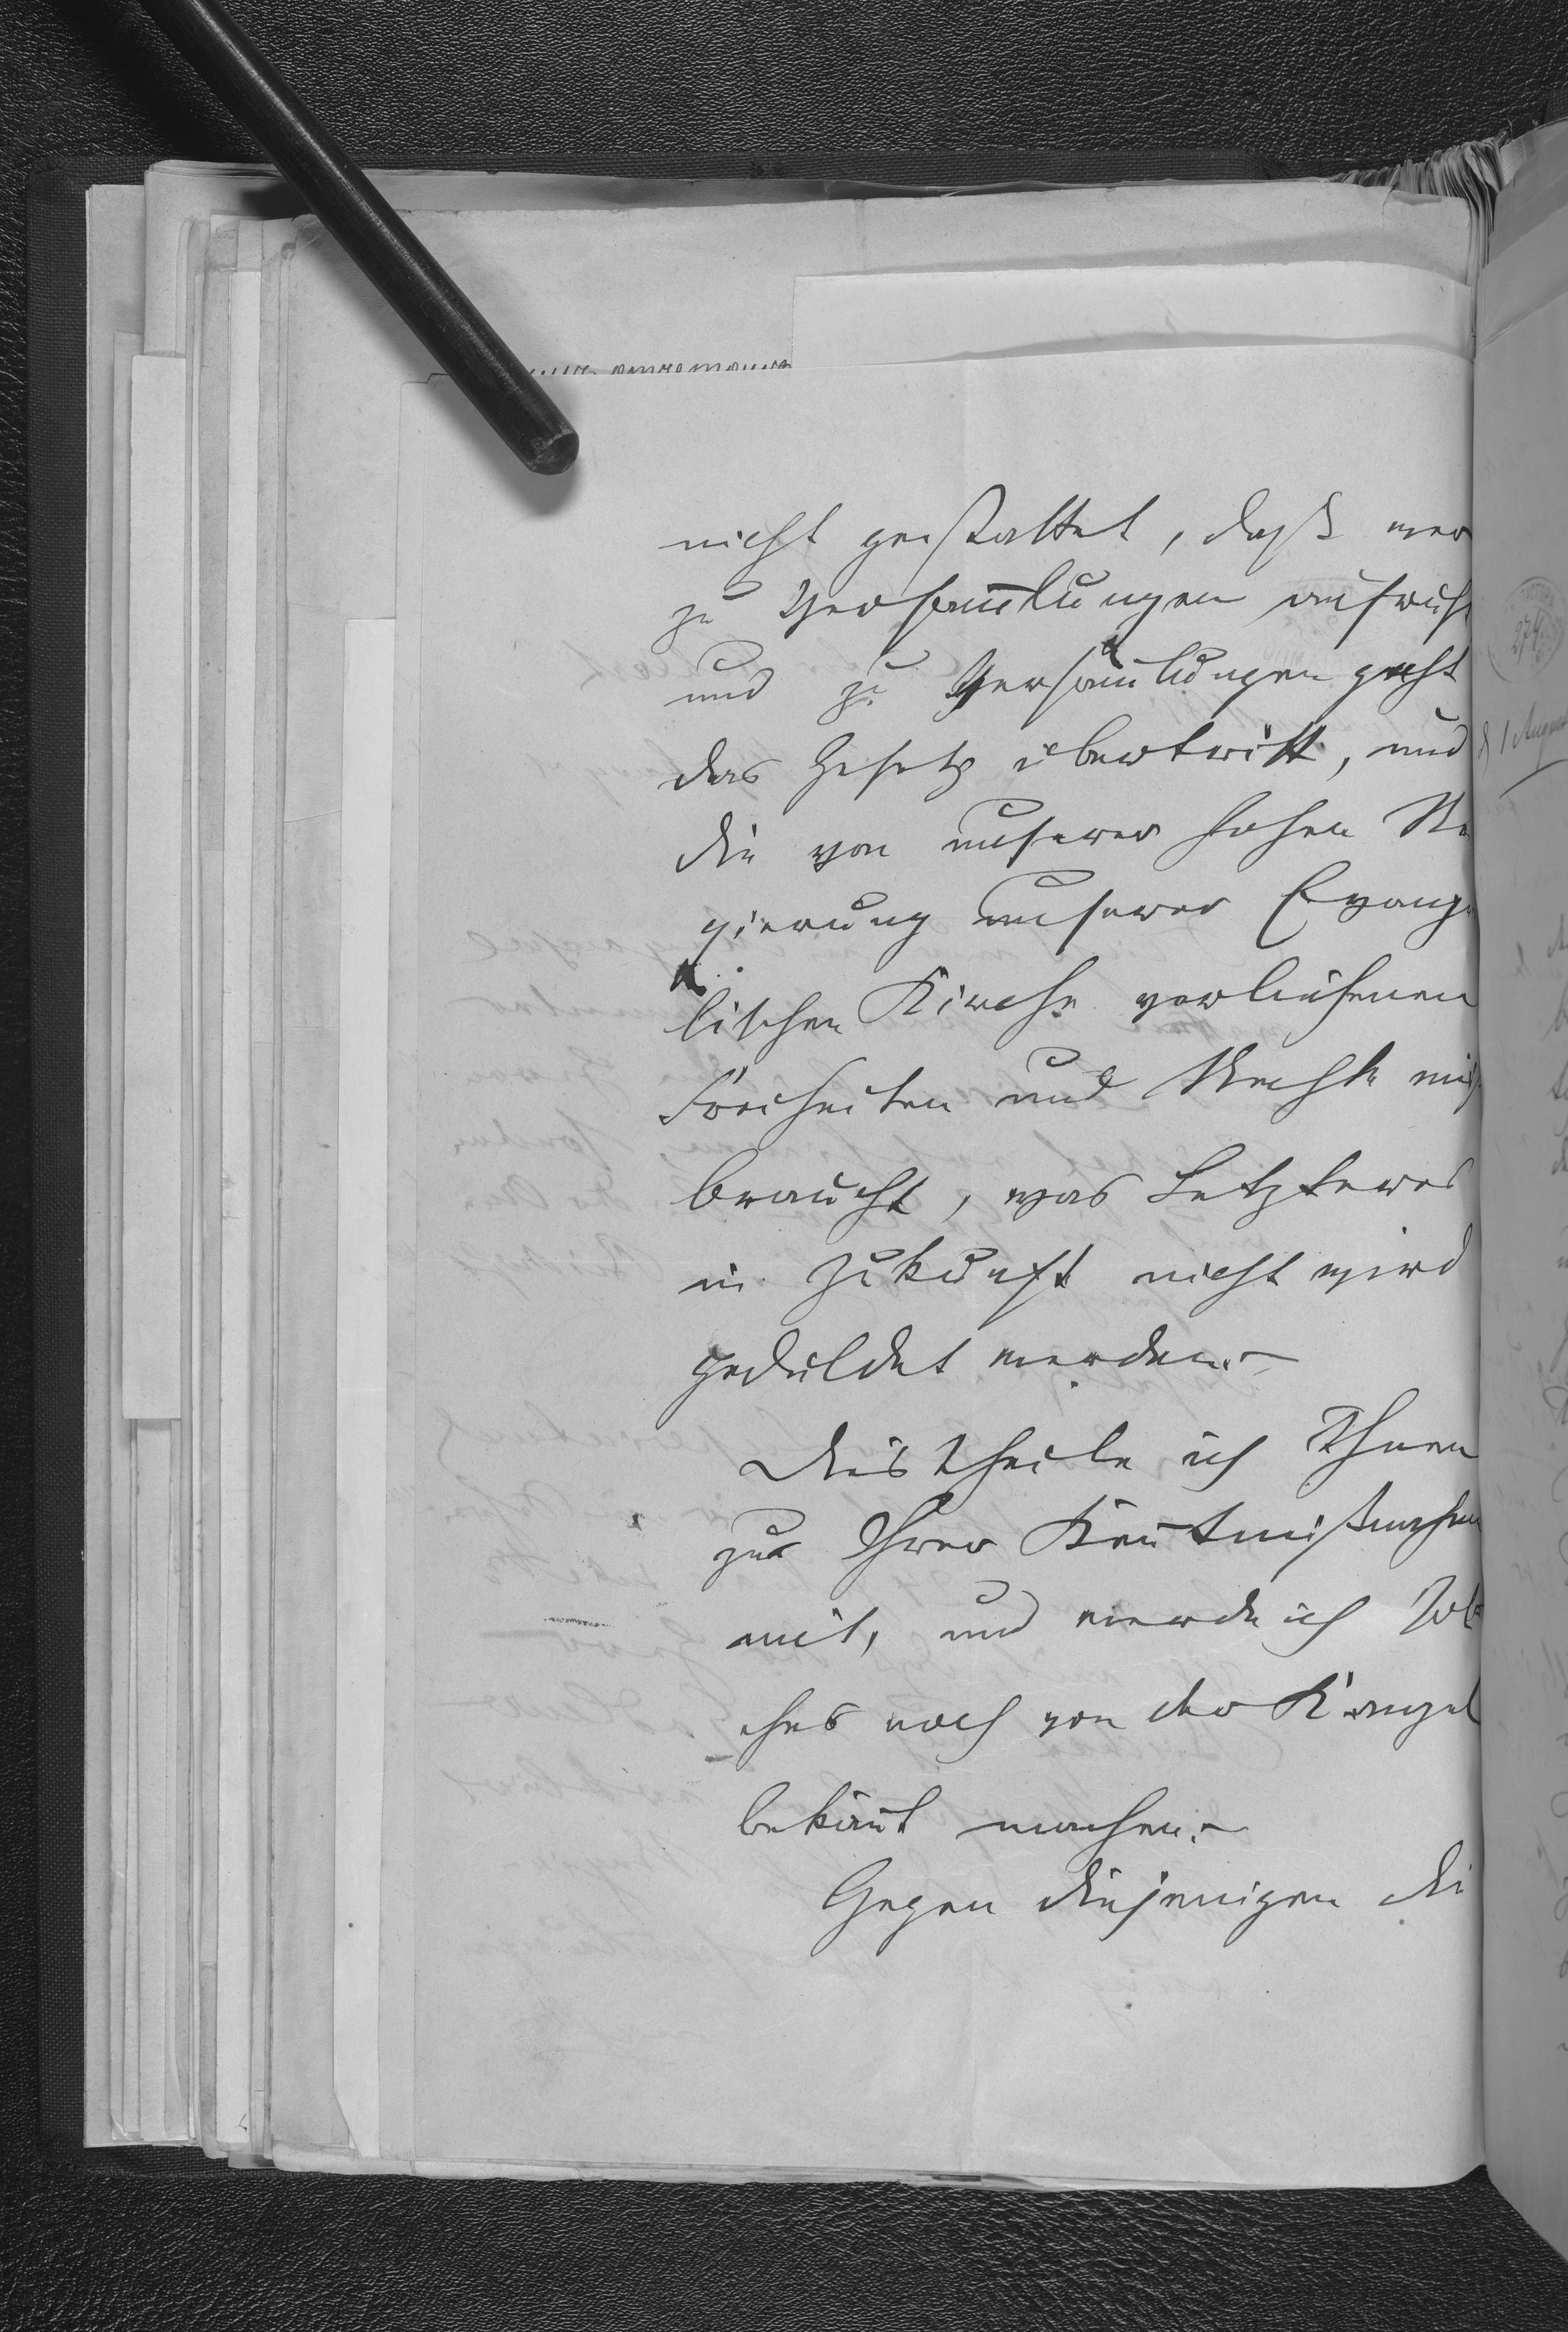 nicht gestattet, daß wer
zu Versam̅lungen aufruft
und zu Versam̅lungen geht
das Gesetz übertritt, und
die von unserer hohen Re
gierung unserer Evange
lischen Kirche verliehenen
Freiheiten und Rechte miß
braucht, was Letzteres
in Zukunft nicht wird
geduldet werden.-
Dies theile ich Ihnen
zur Ihrer Ken̅tnißnahme
mit, und werde ich Sol
ches noch von der Kanzel
bekan̅t machen.-
Gegen diejenigen di
274
d 1 August